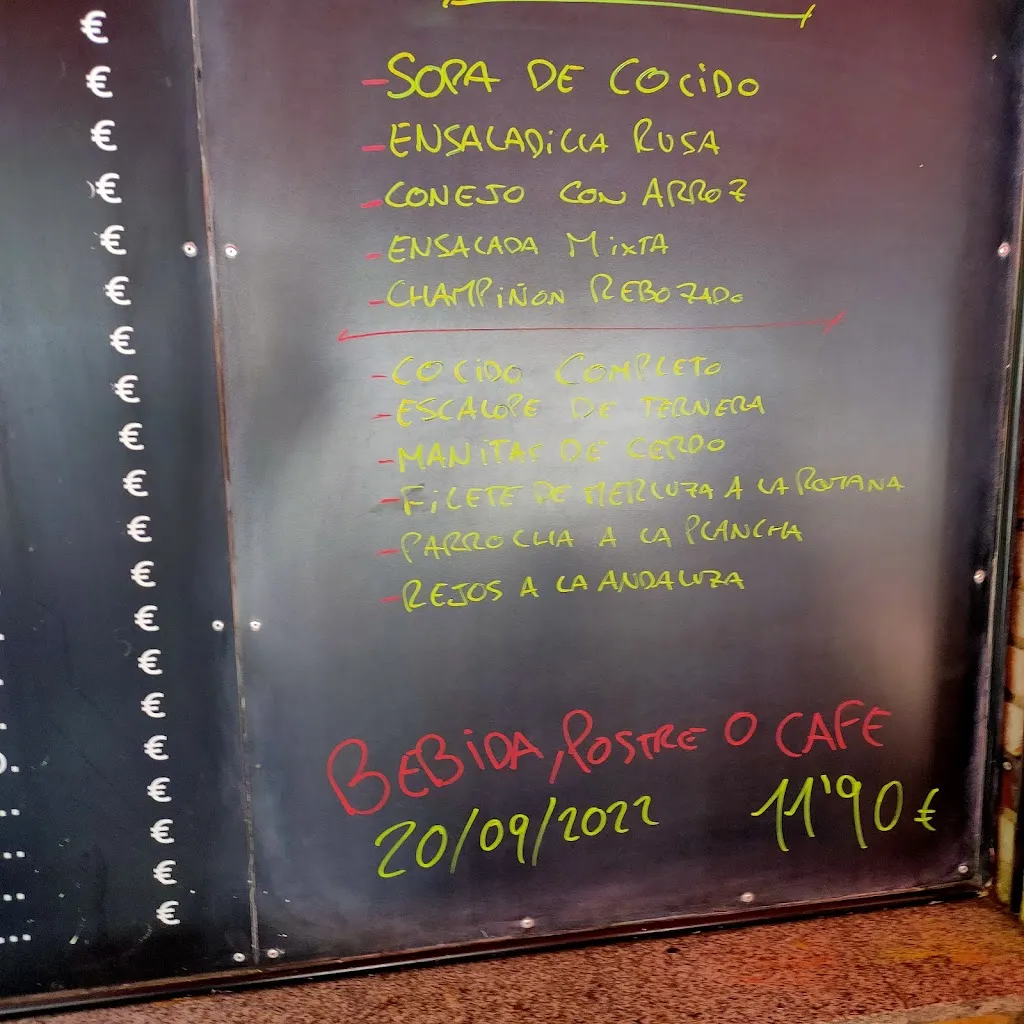 - SOPA DE COCIDO
- ENSALADILLA RUSA
- CONEJO CON ARROZ
- ENSALADA MIXTA
- CHAMPIÑON REBOZADO
- COCIDO COMPLETO
- ESCALOPE DE TERNERA
- MANITAS DE CERDO
- FILETE DE MERLUZA A LA ROMANA
- PARROCHA A LA PLANCHA
- REJOS A LA ANDALUZA
BEBIDA, POSTRE O CAFE
20/09/2022 11'90 €
€
€
€
€
€
€
€
€
€
€
€
€
€
€
€
€
€
€
€
€